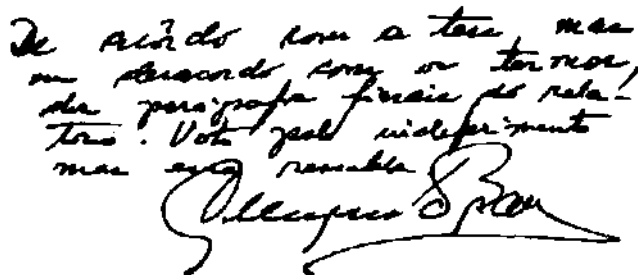 De acôrdo com a tese, mas
em desacordo com os termos,
dos parágrafos finais do rela-
tório. Voto pelo indeferimento
mas essa